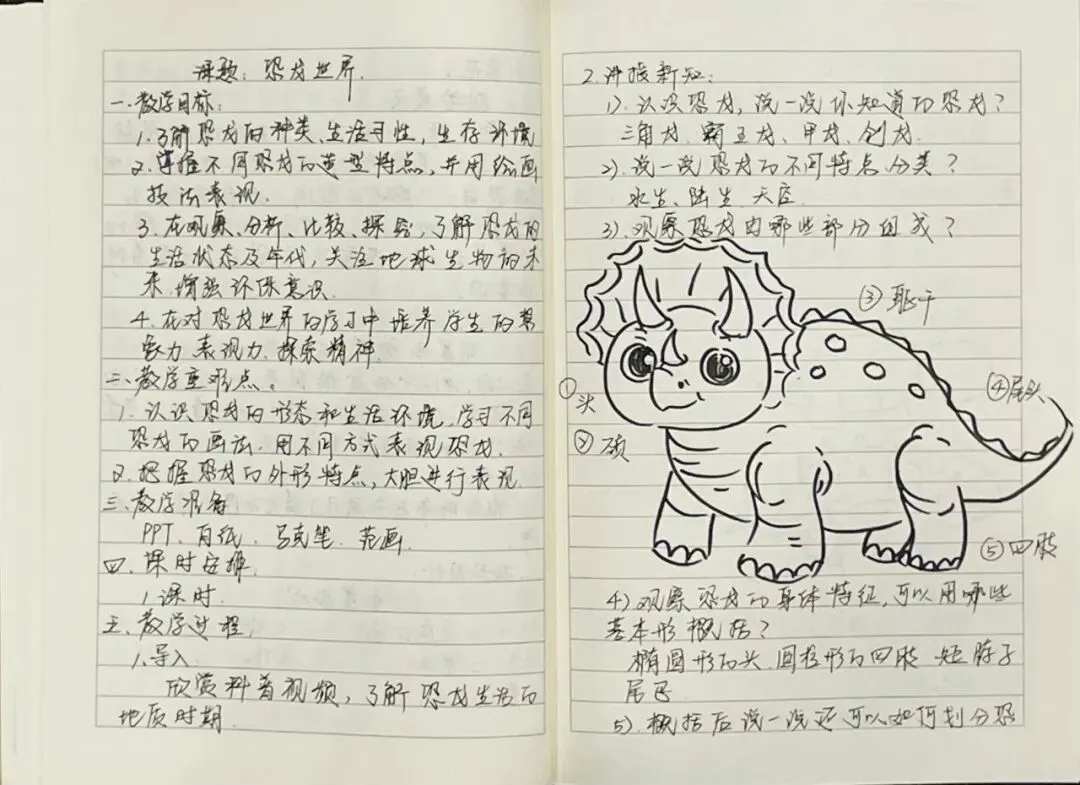 课题：恐龙世界.
一.教学目标:
1.了解恐龙的种类、生活习性,生存环境
2.掌握不同恐龙的造型特点,并用绘画
技法表现.
3.在观察、分析、比较、探究,了解恐龙的
生活状态及年代,关注地球生物的未
来.增强环保意识.
4.在对恐龙世界的学习中培养学生的想
象力.表现力.探索精神.
二、教学重难点。
1.认识恐龙的形态和生活环境.学习不同
恐龙的画法.用不同方式表现恐龙.
2.把握恐龙的外形特点,大胆进行表现
三、教学准备
PPT、白纸、马克笔.范画.
四.课时安排.
1课时.
五、教学过程,
1.导入
欣赏科普视频,了解恐龙生活的
地质时期.
2.讲授新知:
1).认识恐龙,说一说你知道的恐龙?
三角龙、霸王龙、甲龙、剑龙.
2).说一说恐龙的不同特点分类?
水生、陆生、天空
3).观察恐龙由哪些部分组成?
③躯干
④尾头
①头
②颈
⑤四肢
4)观察恐龙的身体特征,可以用哪些
基本形概括?
椭圆形的头.圆柱形的四肢 短脖子
尾巴
5).概括后说一说还可以如何划分恐